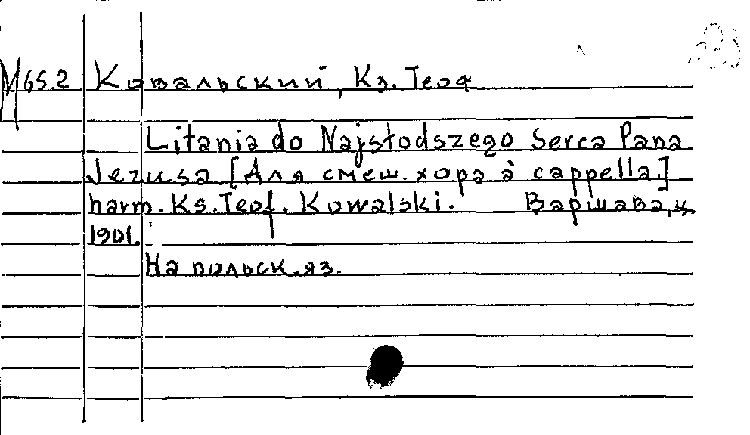 М652 Ковальский, Кз. Теоф
Litania do Najsłodszego Serca Pana
Jezusa [Для смеш. хора à cappella]
harm. Ks. Teof. Kowalski. Варшава, ц.
1901.
На польск. яз.